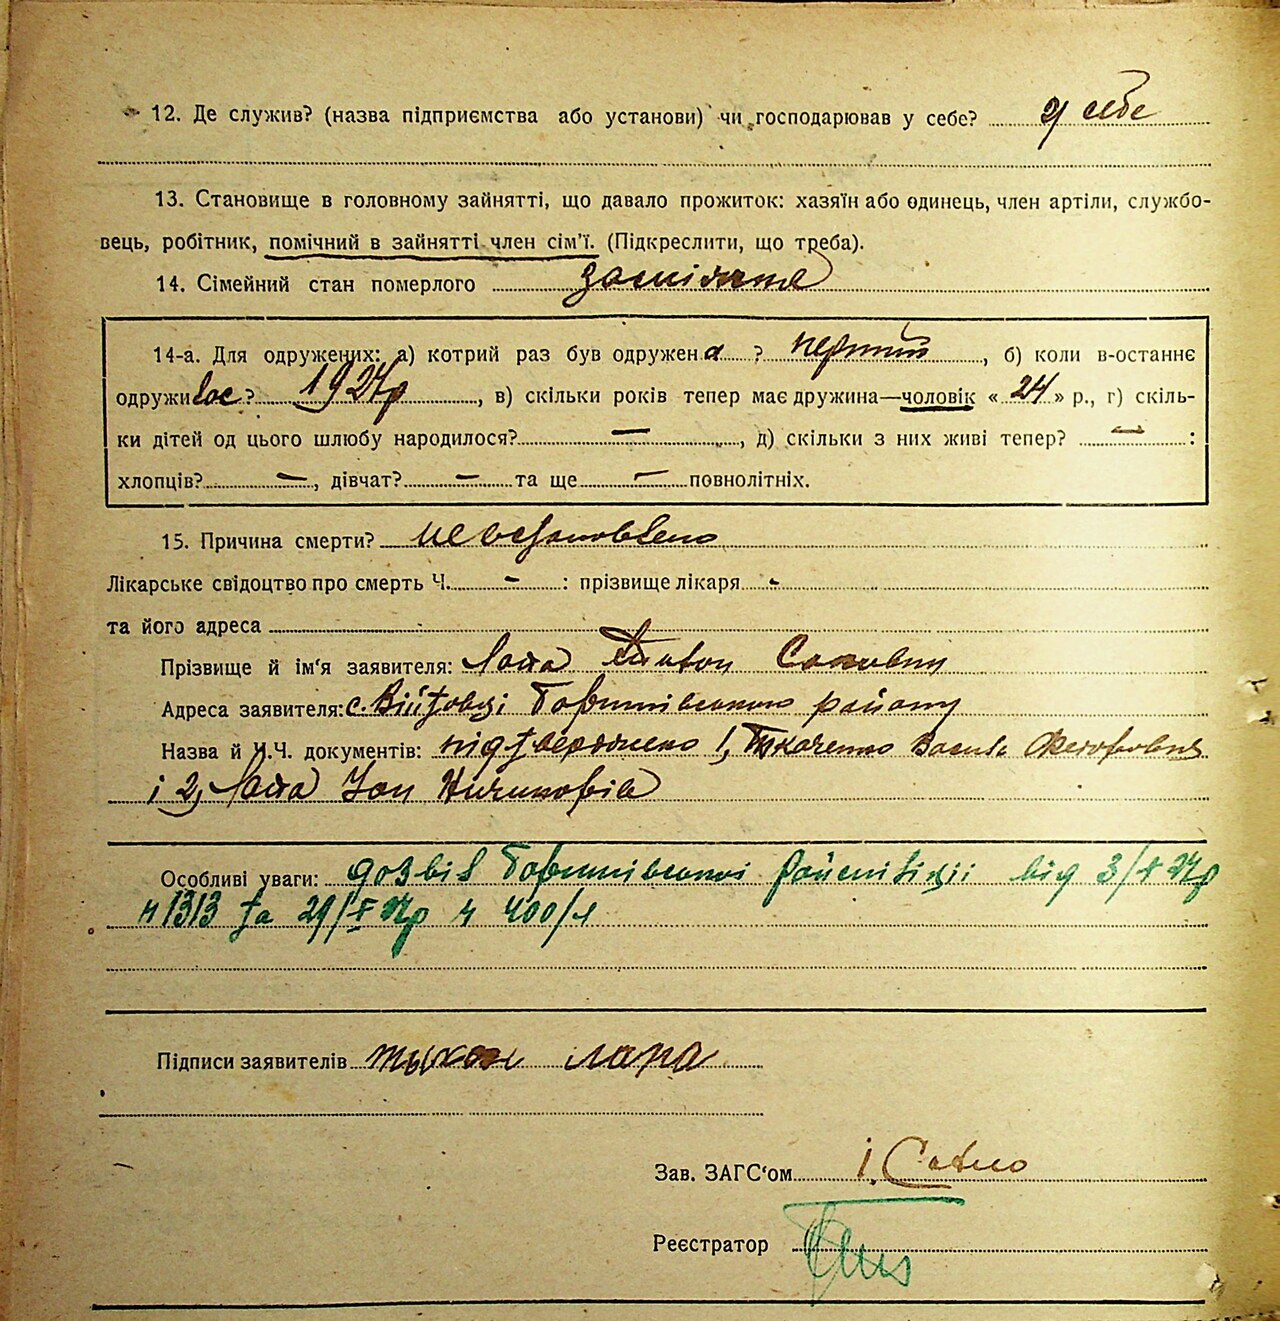 12. Де служив? (назва підприємства або установи) чи господарював у себе? у себе
13. Становище в головному зайнятті, що давало прожиток: хазяїн або одинець, член артілі, службо-
вець, робітник, помічний в зайнятті член сім'ї. (Підкреслити, що треба).
14. Сімейний стан померлого заміжня
14-а. Для одружених: а) котрий раз був одружена ? перший, б) коли в-останнє
одружилас? 1927р, в) скільки років тепер має дружина—чоловік «24» р., г) скіль-
ки дітей од цього шлюбу народилося? —, д) скільки з них живі тепер? — :
хлопців? —, дівчат? — та ще — повнолітніх.
15. Причина смерти? не встановлено
Лікарське свідоцтво про смерть Ч. - : прізвище лікаря -
та його адреса
Прізвище й ім'я заявителя: Лапа
Адреса заявителя: с. Війтовці Боришківського району
Назва й Ч.Ч. документів: підтверджено 1, Ткаченко Федорович
і 2, Лапа
Особливі уваги: дозвіл Боришківської райміліції від 3/X 27р
н 1313 та 29/X 27р н 400/1
Підписи заявителів лапа
Зав. ЗАГС'ом І.
Реєстратор